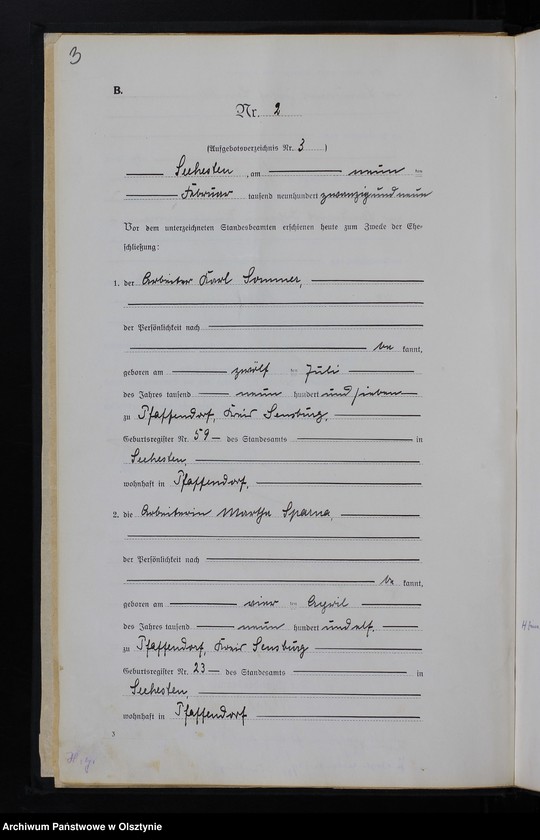 3
B.
Nr. 2
(Aufgebotsverzeichnis Nr. 3)
Seehesten, am neun ten
Februar tausend neunhundert zwanzig und neun
Vor dem unterzeichneten Standesbeamten erschienen heute zum Zwecke der Ehe-
schließung:
1. der Arbeiter Karl Sommer,
der Persönlichkeit nach
be kannt,
geboren am zwölf ten Juli
des Jahres tausend neun hundert und sieben
zu Pfaffendorf, Kreis Sensburg,
Geburtsregister Nr. 59 des Standesamts in
Seehesten,
wohnhaft in Pfaffendorf,
2. die Arbeiterin Martha Sparna,
der Persönlichkeit nach
be kannt,
geboren am vier ten April
des Jahres tausend neun hundert und elf,
zu Pfaffendorf, Kreis Sensburg
Geburtsregister Nr. 23 des Standesamts in
Seehesten,
wohnhaft in Pfaffendorf
3
Archiwum Państwowe w Olsztynie